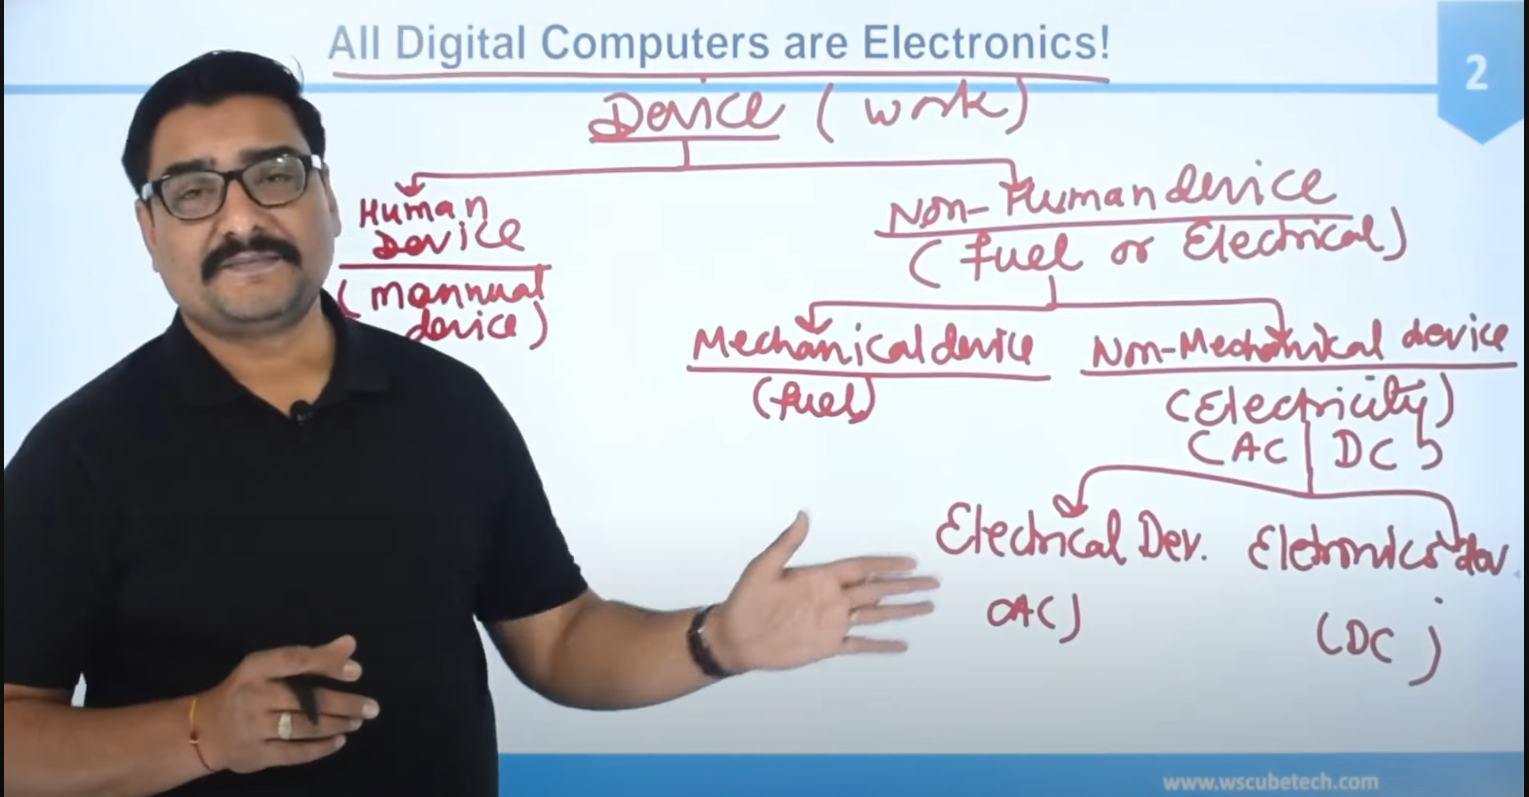 All Digital Computers are Electronics!
2
Device (work)
Human
Device
(mannual
device)
Non-Human device
(fuel or Electrical)
Mechanical device
(fuel)
Non-Mechanical device
(Electricity)
(AC | DC)
Electrical Dev.
(AC)
Eletronics dev.
(DC)
www.wscubetech.com